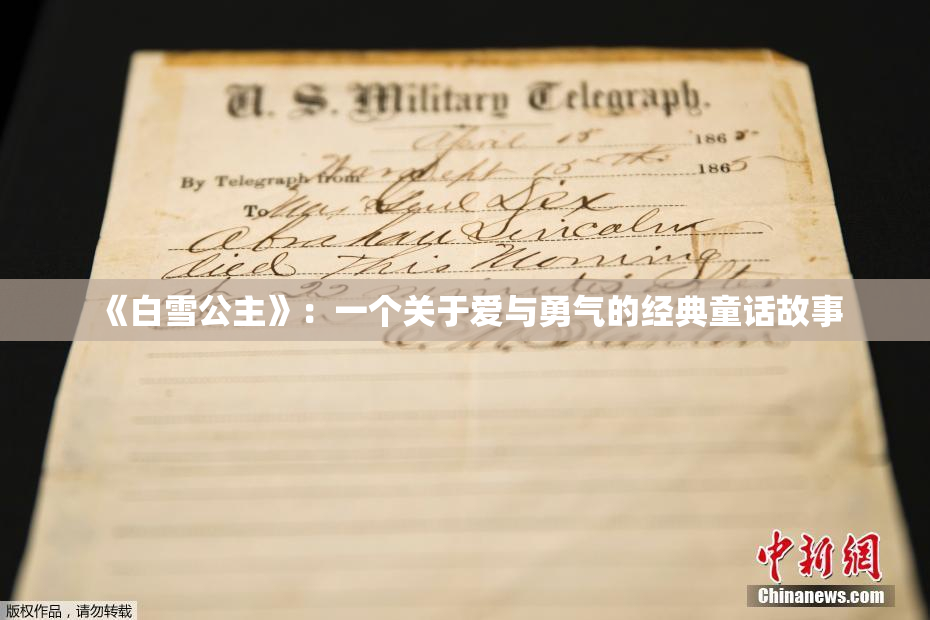 U. S. Military Telegraph.
April 15 1865
By Telegraph from War Dept 15th 1865
To Maj Genl Dix
Abraham Lincoln
died This Morning
at 22 minutes after
《白雪公主》：一个关于爱与勇气的经典童话故事
E. M. Stanton
中新网
Chinanews.com
版权作品，请勿转载